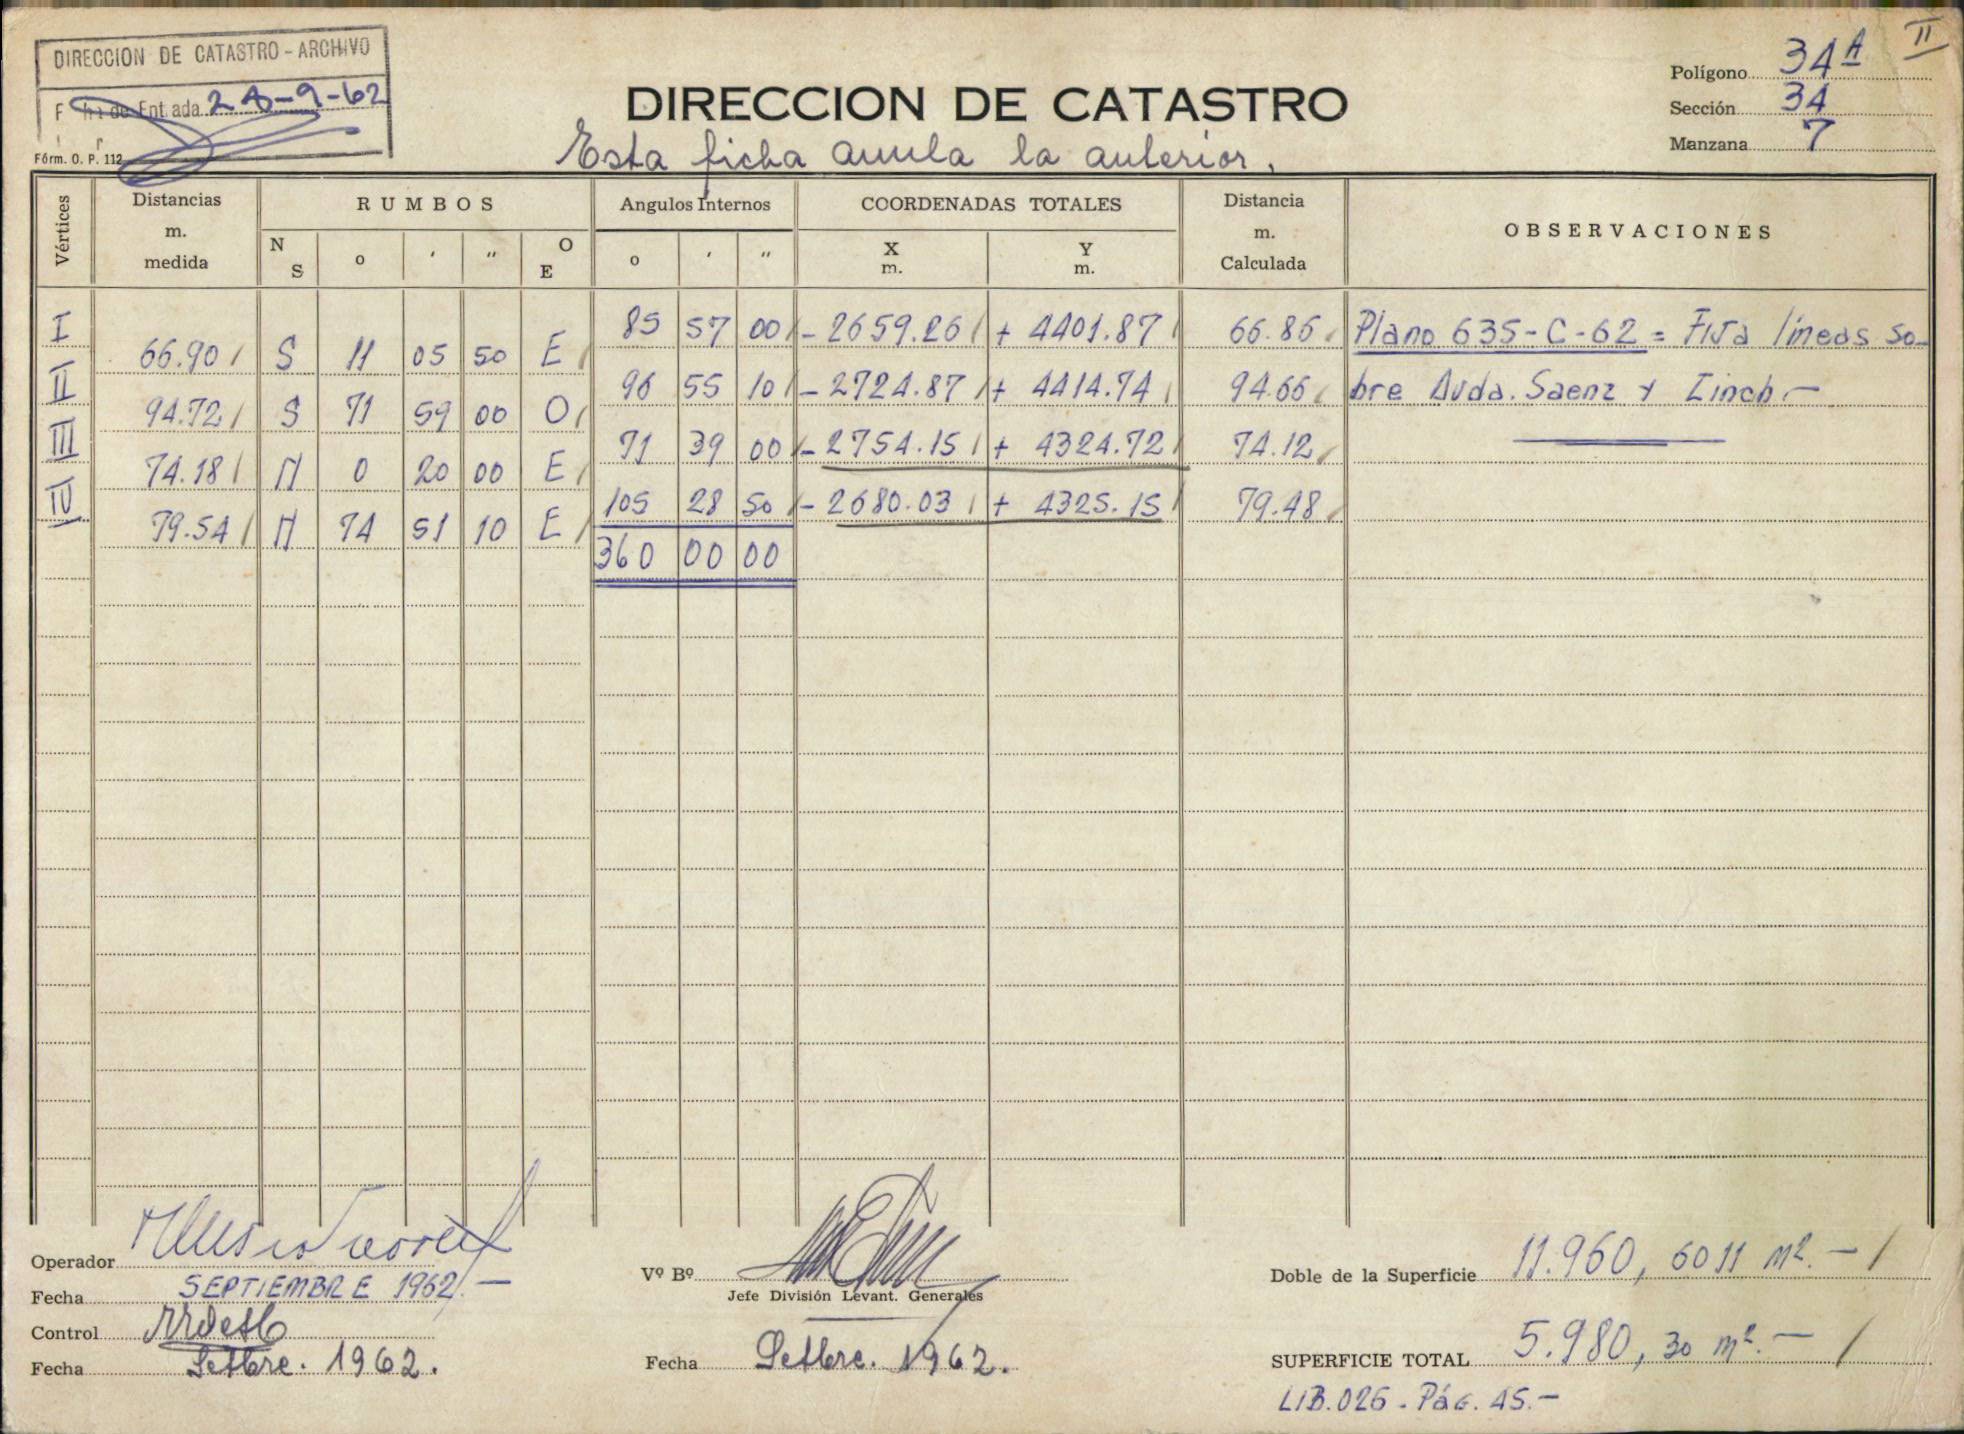 II
DIRECCION DE CATASTRO - ARCHIVO
Entrada 28-9-62
Fórm. O. P. 112
DIRECCION DE CATASTRO
Esta ficha anula la anterior.
Polígono 34 A
Sección 34
Manzana 7
Vértices
Distancias m. medida
RUMBOS
N S o ' " O E
Angulos Internos
o ' "
COORDENADAS TOTALES
X m. Y m.
Distancia m. Calculada
OBSERVACIONES
I 85 57 00 - 2659.26 + 4401.87 66.86 Plano 635-C-62 = Fija líneas so-
66.90 S 11 05 50 E
II 96 55 10 - 2724.87 + 4414.74 94.66 bre Avda. Saenz y Einch.-
94.72 S 71 59 00 O
III 71 39 00 - 2754.15 + 4324.72 74.12
74.18 N 0 20 00 E
IV 105 28 50 - 2680.03 + 4325.15 79.48
79.54 N 74 51 10 E
360 00 00
Operador
Fecha SEPTIEMBRE 1962.-
Control
Fecha Setbre. 1962.
Vº Bº
Jefe División Levant. Generales
Fecha Setbre. 1962.
Doble de la Superficie 11.960, 6011 m². -
SUPERFICIE TOTAL 5.980, 30 m². -
LIB. 026 - Pág. 45.-